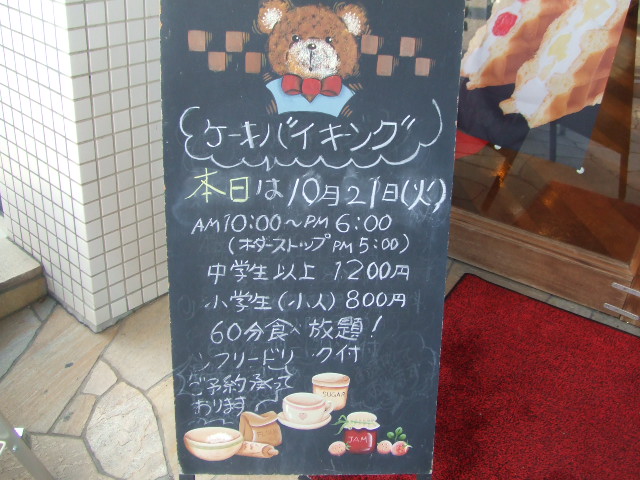 ケーキバイキング
本日は10月21日(火)
AM10:00～PM6:00
(オーダーストップPM5:00)
中学生以上 1200円
小学生(小人)800円
60分食べ放題!
ソフリードリ ク付
ご予約承って
おります
SUGAR
JAM